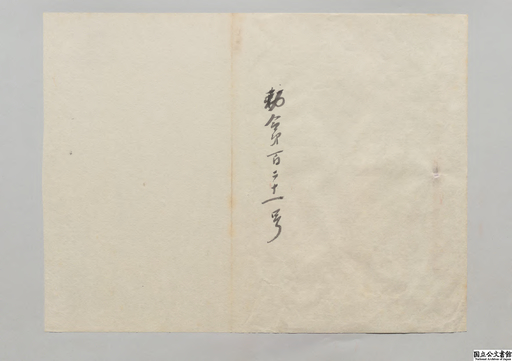 勅令第百二十一号
国立公文書館
National Archives of Japan